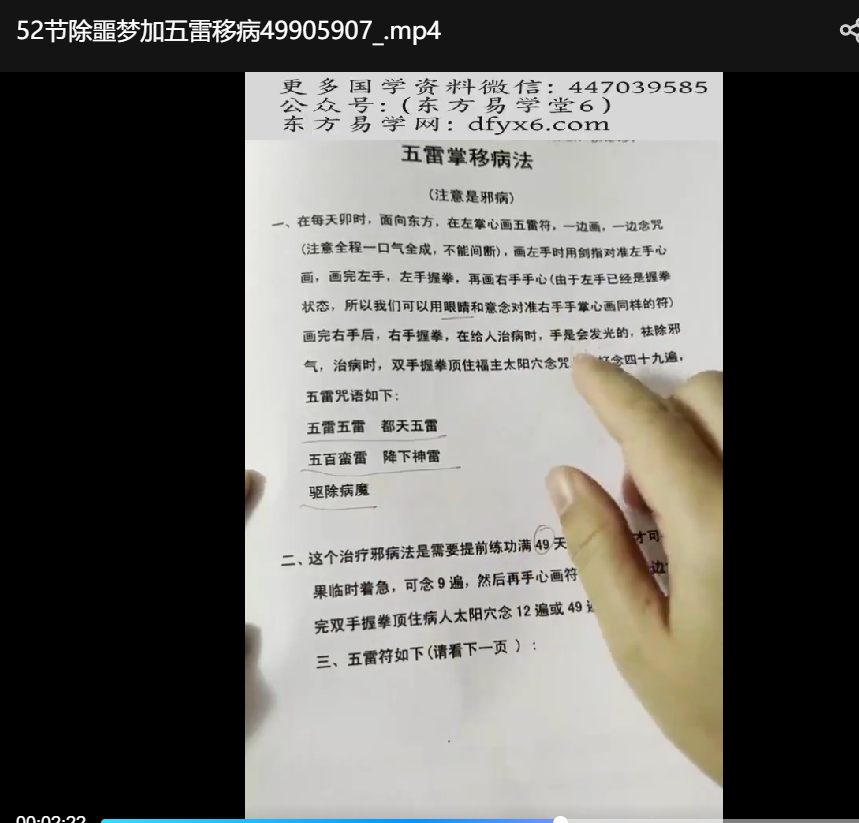 52节除噩梦加五雷移病49905907_.mp4
更多国学资料微信：447039585
公众号：（东方易学堂6）
东方易学网：dfyx6.com
五雷掌移病法
（注意是邪病）
一、在每天卯时，面向东方，在左掌心画五雷符，一边画，一边念咒
（注意全程一口气全成，不能间断），画左手时用剑指对准左手心
画，画完左手，左手握拳，再画右手手心（由于左手已经是握拳
状态，所以我们可以用眼睛和意念对准右手手掌心画同样的符）
画完右手后，右手握拳，在给人治病时，手是会发光的，祛除邪
气，治病时，双手握拳顶住福主太阳穴念咒 念四十九遍，
五雷咒语如下：
五雷五雷 都天五雷
五百蛮雷 降下神雷
驱除病魔
二、这个治疗邪病法是需要提前练功满49天 才可
果临时着急，可念9遍，然后再手心画符 边
完双手握拳顶住病人太阳穴念12遍或49
三、五雷符如下（请看下一页）：
00:02:22